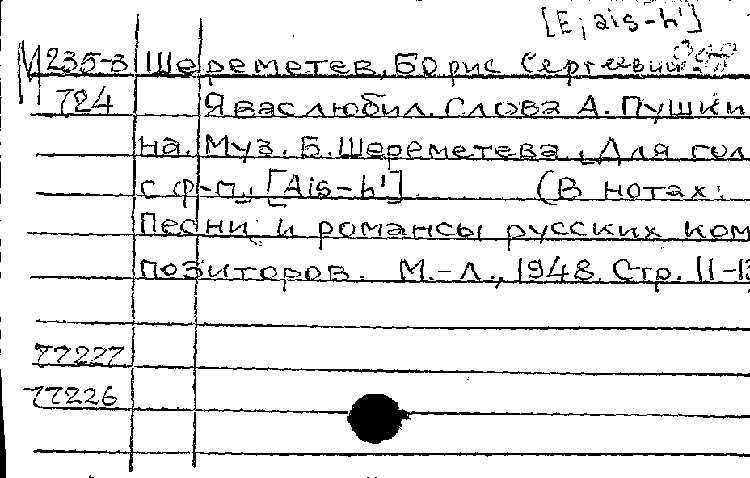 [E; ais-h']
М 235-8 Шереметев, Борис Сергеевич.
724 Я вас любил. Слова А. Пушки
на. Муз. Б. Шереметева. Для гол
с ф-п. [Ais-h'] (В нотах:
Песни и романсы русских ком
позиторов. М.-Л., 1948. Стр. 11-13
77227
77226